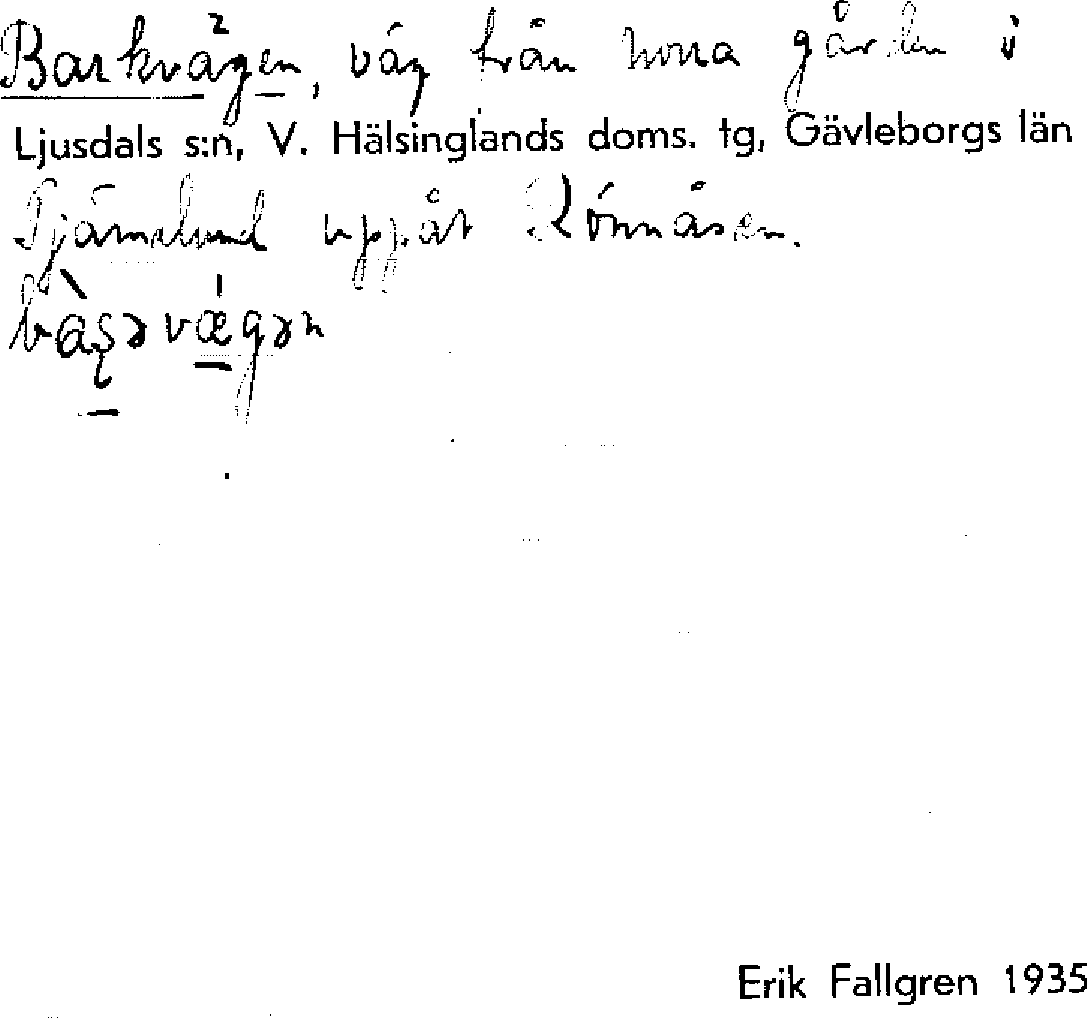 Barkvägen, väg från norra gården i
Ljusdals s:n, V. Hälsinglands doms. tg, Gävleborgs län
Tjärnslund uppåt Rönnåsen.
Erik Fallgren 1935